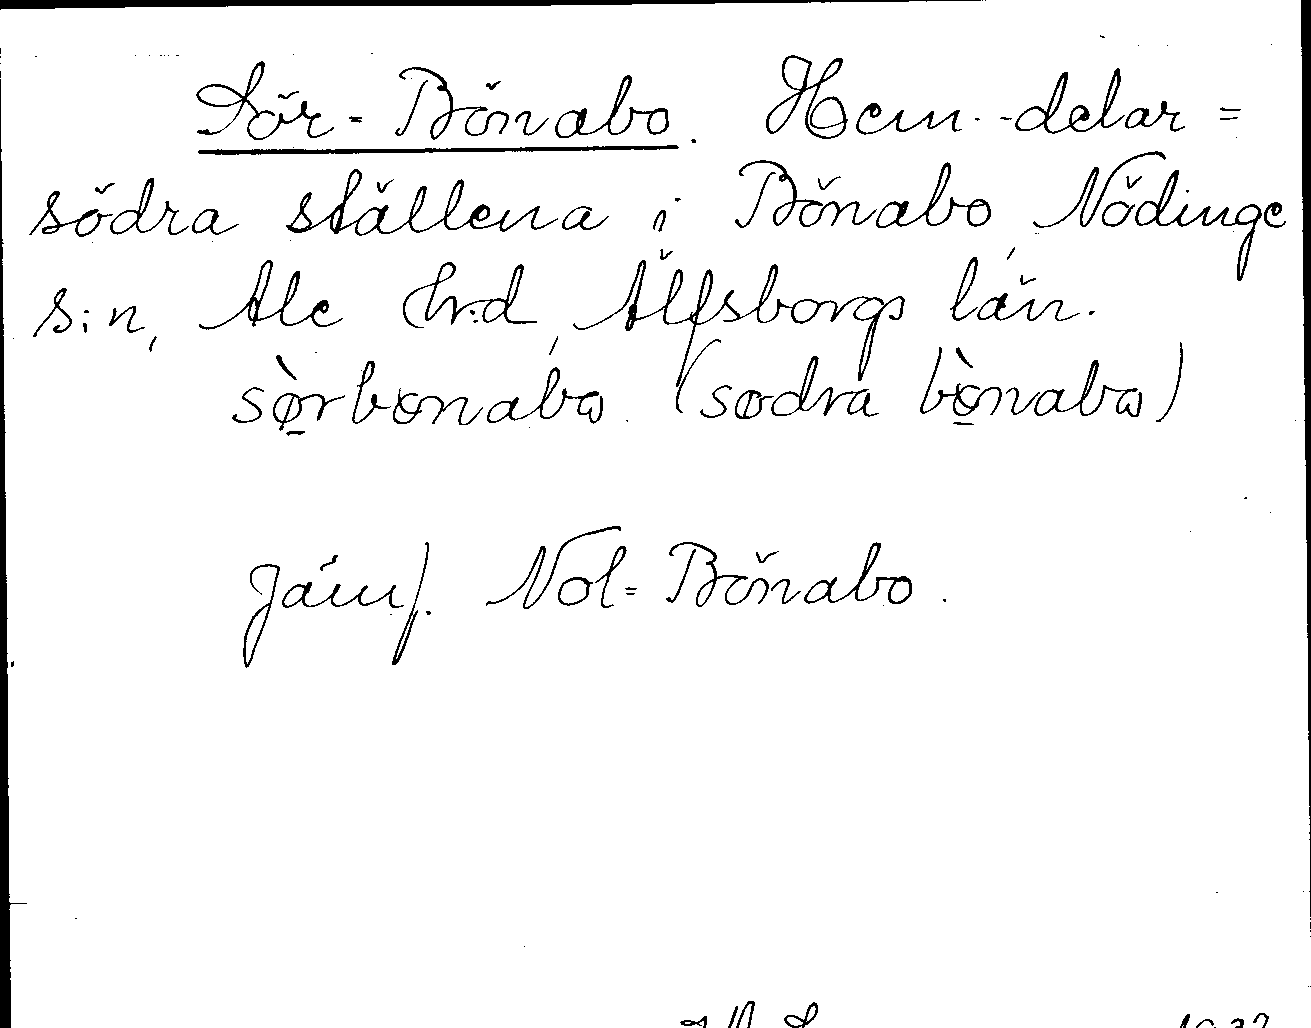 Sör-Bönabo. Hem.-delar =
södra ställena i Bönabo, Nödinge
s:n, Ale hrd, Älfsborgs län.
sørbønabω (sødra bø̀nabω)
Jämf. Nol-Bönabo.